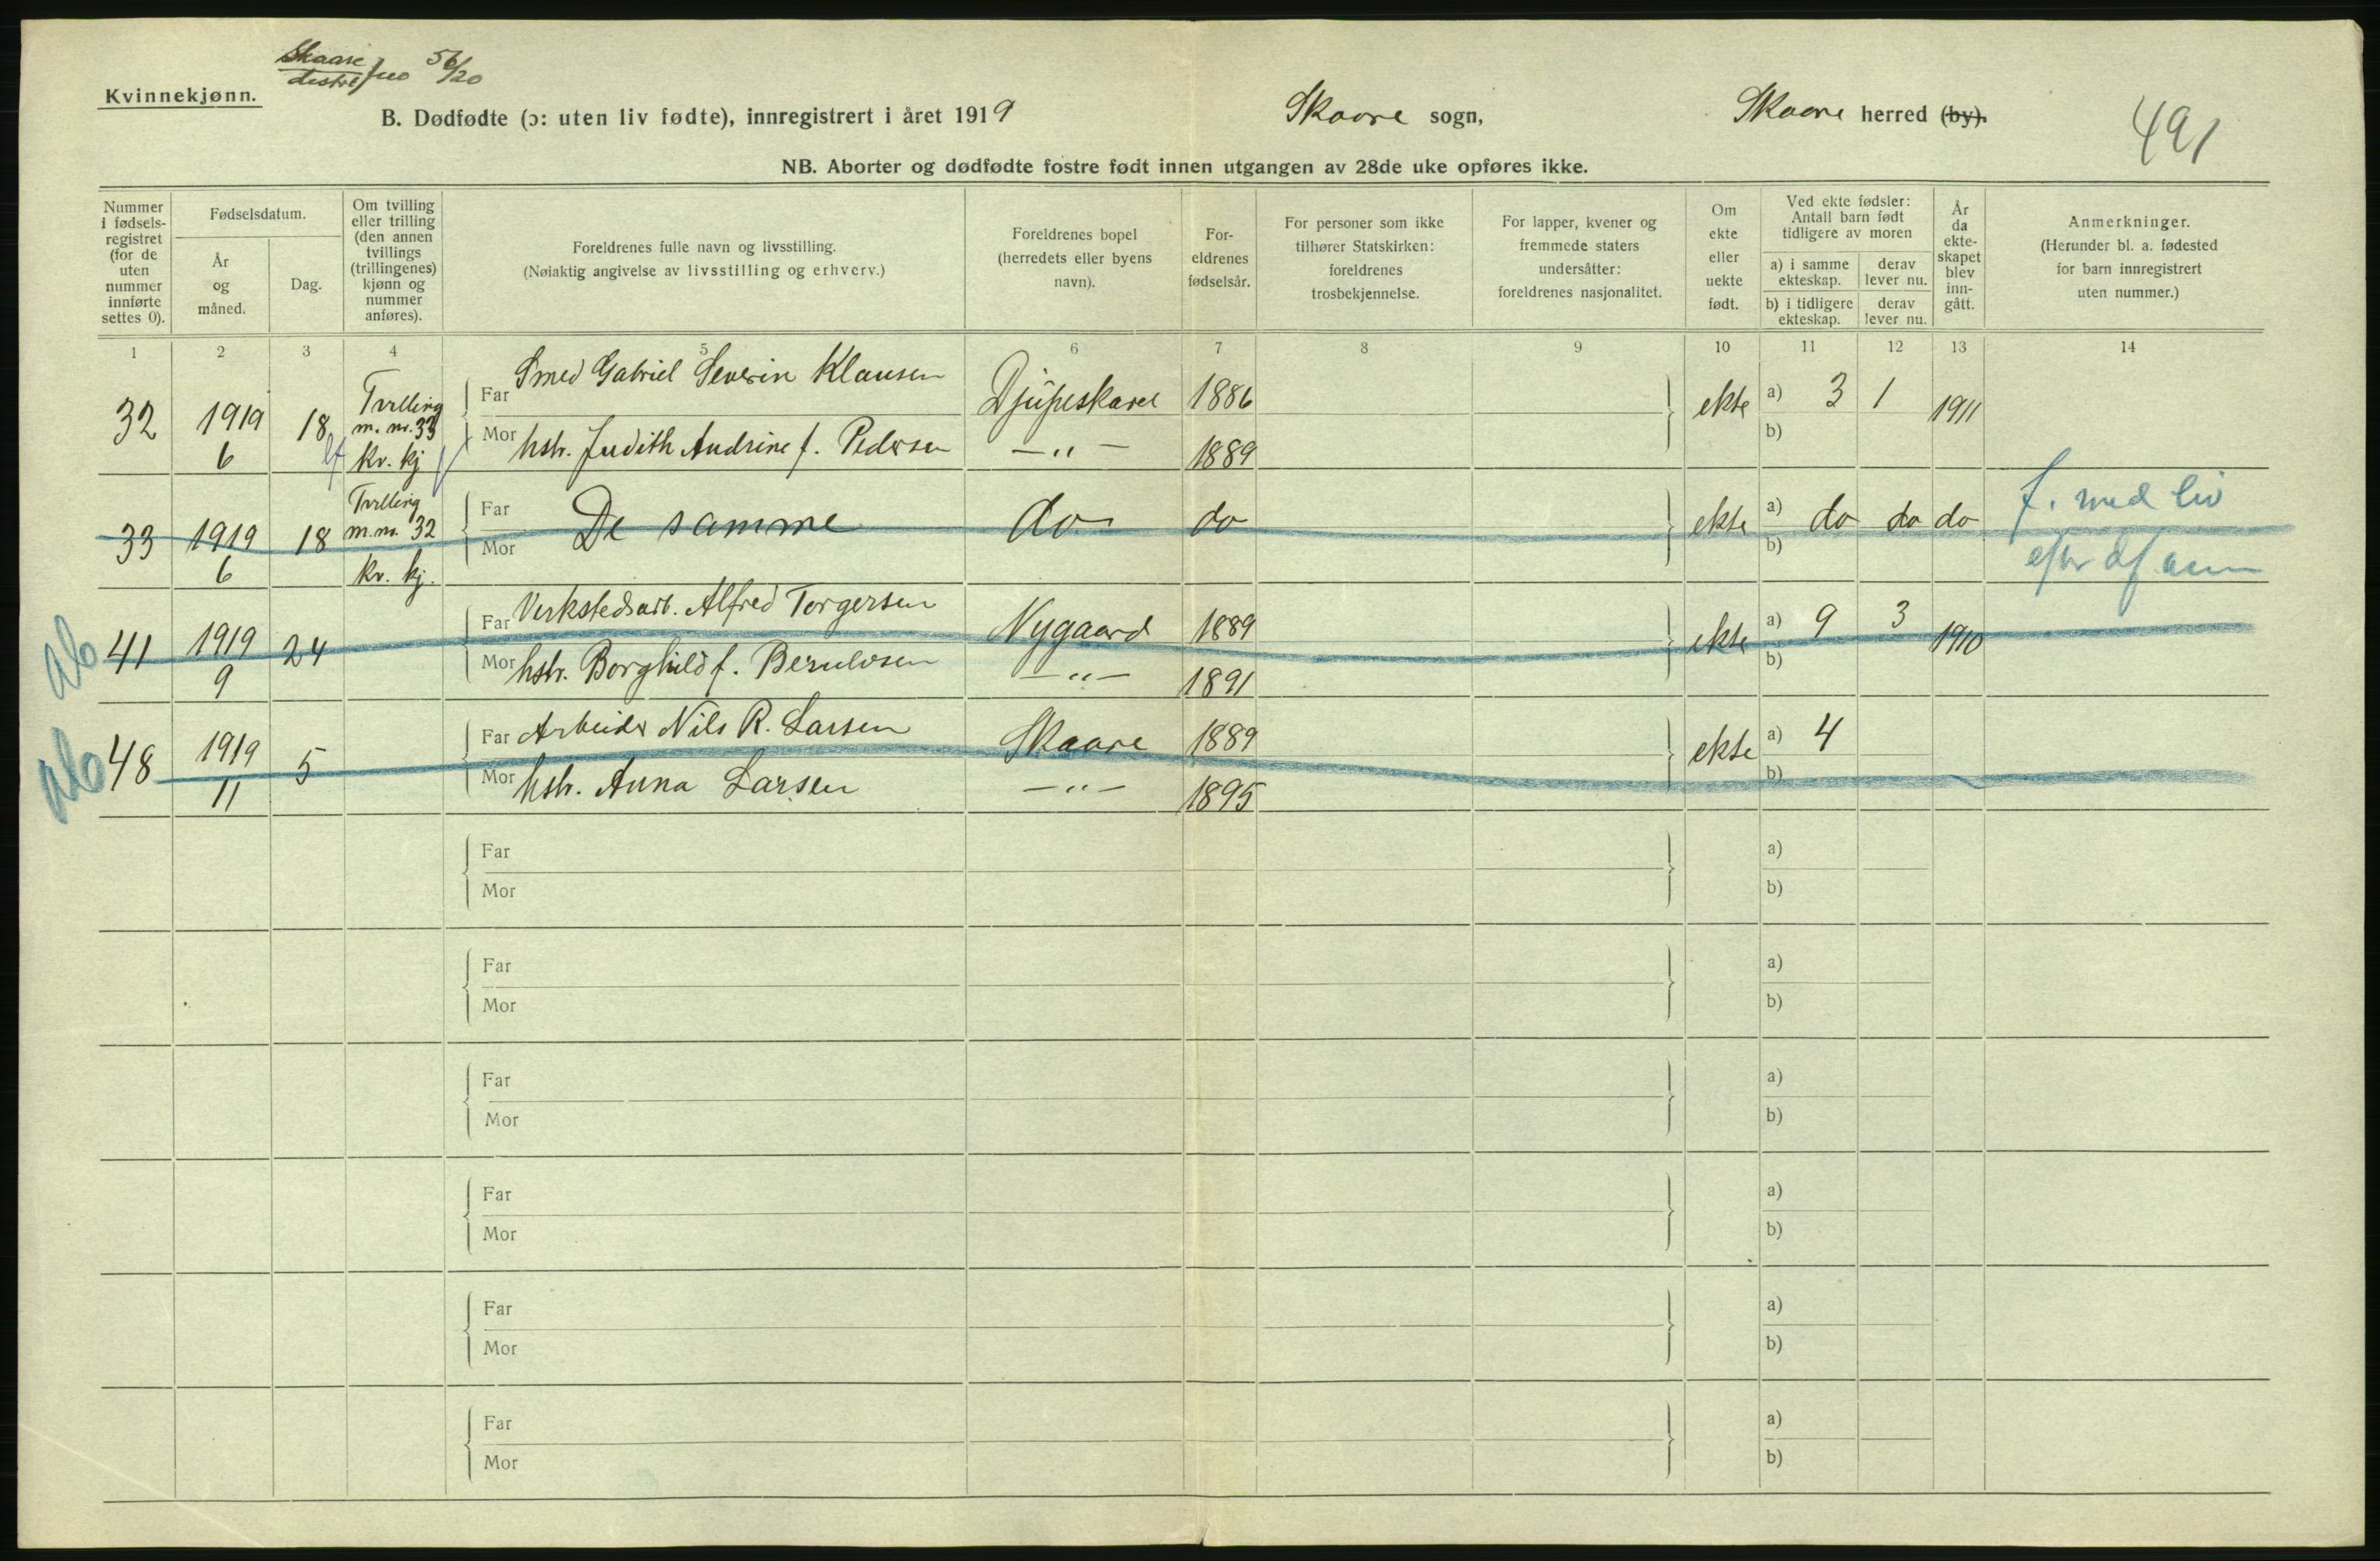 Skaare
distr. 56/20
Kvinnekjønn.
B. Dødfødte (ɔ: uten liv fødte), innregistrert i året 1919
Skaare sogn,
Skaare herred (by).
491
NB. Aborter og dødfødte fostre født innen utgangen av 28de uke opføres ikke.
Nummer i fødsels-registret (for de uten nummer innførte settes 0).
Fødselsdatum.
År og måned.
Dag.
Om tvilling eller trilling (den annen tvillings (trillingenes) kjønn og nummer anføres).
Foreldrenes fulle navn og livsstilling.
(Nøiaktig angivelse av livsstilling og erhverv.)
Foreldrenes bopel (herredets eller byens navn).
For-eldrenes fødselsår.
For personer som ikke tilhører Statskirken: foreldrenes trosbekjennelse.
For lapper, kvener og fremmede staters undersåtter: foreldrenes nasjonalitet.
Om ekte eller uekte født.
Ved ekte fødsler: Antall barn født tidligere av moren
a) i samme ekteskap.
derav lever nu.
b) i tidligere ekteskap.
derav lever nu.
År da ekte-skapet blev inn-gått.
Anmerkninger.
(Herunder bl. a. fødested for barn innregistrert uten nummer.)
1 2 3 4 5 6 7 8 9 10 11 12 13 14
32 1919 6 18 Tvilling m. nr. 33 kv. kj
Far Smed Gabriel Severin Klausen Djupeskarel 1886 ekte a) 3 1 1911
Mor hstr. Judith Andrine f. Pedersen —„— 1889 b)
33 1919 6 18 Tvilling m. nr. 32 kv. kj.
Far De samme do do ekte a) do do do f. med liv
Mor b)
ab 41 1919 9 24
Far Verkstedsarb. Alfred Torgersen Nygaard 1889 ekte a) 9 3 1910
Mor hstr. Borghild f. —„— 1891 b)
ab 48 1919 11 5
Far Arbeider Nils R. Larsen Skaare 1889 ekte a) 4
Mor hstr. Anna Larsen —„— 1895 b)
Far a)
Mor b)
Far a)
Mor b)
Far a)
Mor b)
Far a)
Mor b)
Far a)
Mor b)
Far a)
Mor b)